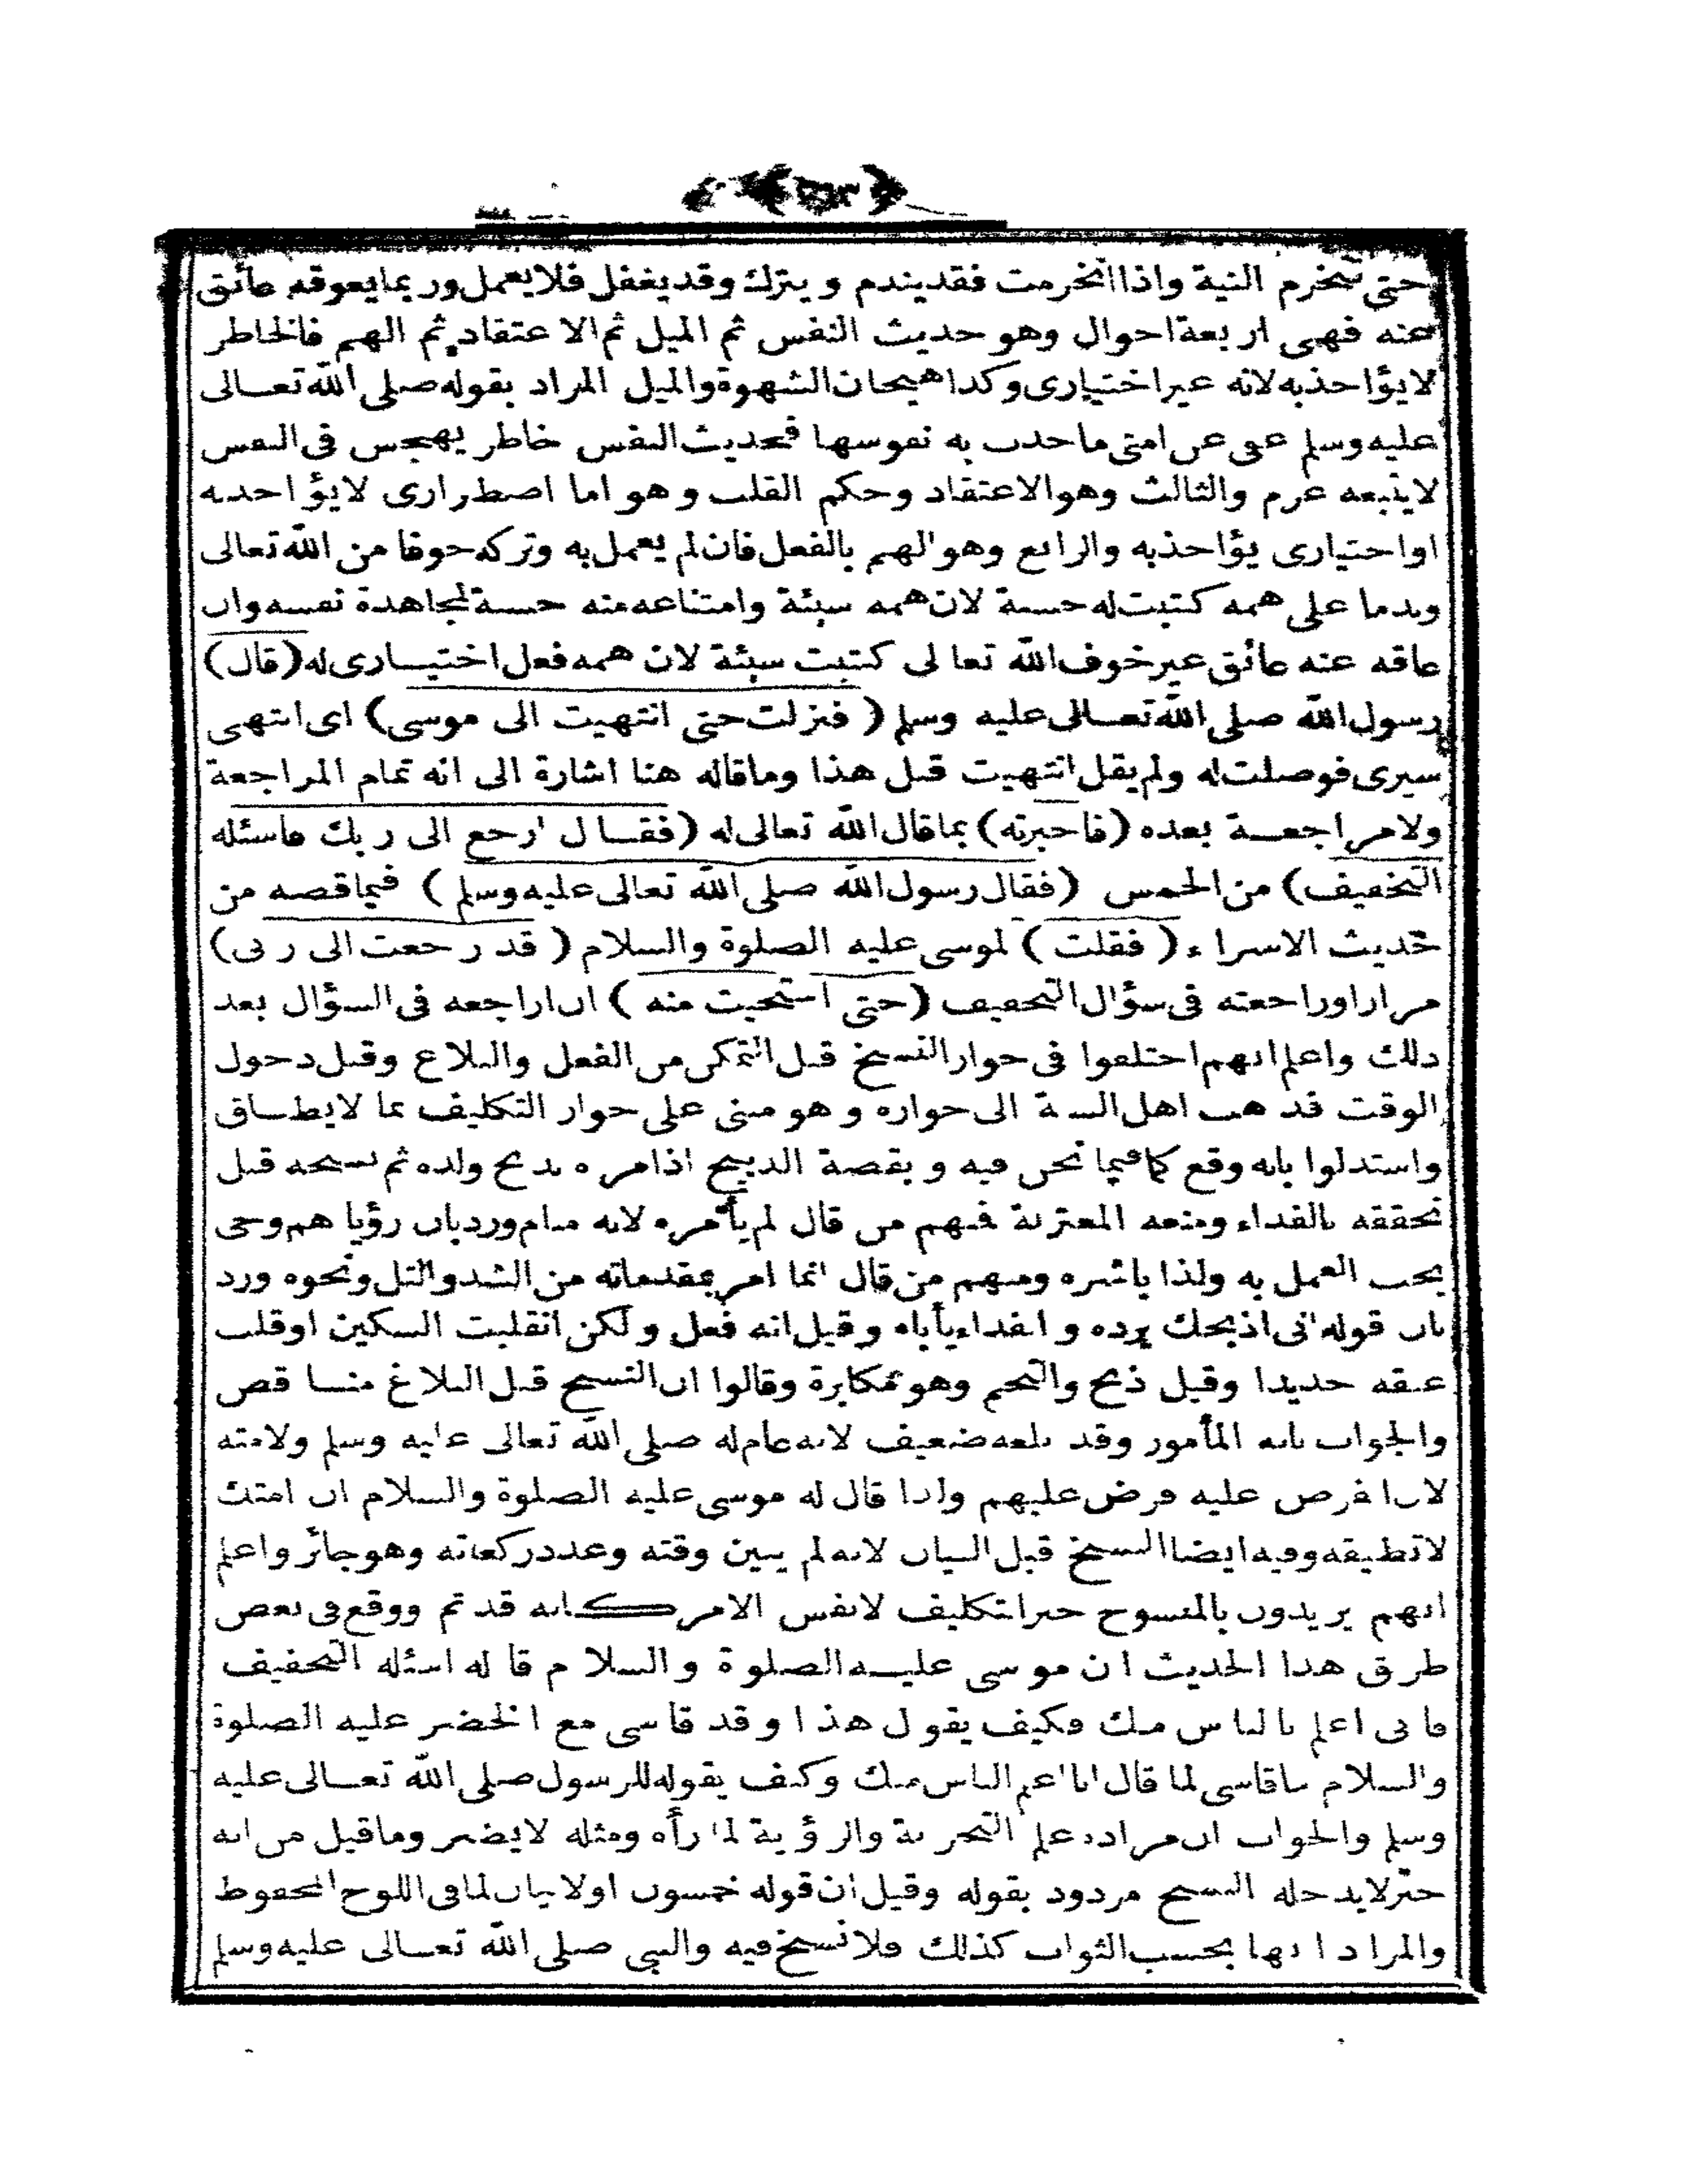 حتى تنخرم النية واذا انخرمت فقد يندم ويترك وقد يغفل فلا يعمل وربما يعوقه عائق
عنه فهى اربعة احوال وهو حديث النفس ثم الميل ثم الاعتقاد ثم الهم فالخاطر
لا يؤاخذ به لانه غير اختيارى وكذا هيجان الشهوة والميل المراد بقوله صلى الله تعالى
عليه وسلم عفى عن امتى ما حدث به نفوسها فحديث النفس خاطر يهجس فى النفس
لا يتبعه عزم والثالث وهو الاعتقاد وحكم القلب وهو اما اضطرارى لا يؤاخذ به
او اختيارى يؤاخذ به والرابع وهو الهم بالفعل فان لم يعمل به وتركه خوفا من الله تعالى
وندما على همه كتبت له حسنة لان همه سيئة وامتناعه منه حسنة لمجاهدة نفسه وان
عاقه عنه عائق غير خوف الله تعالى كتبت سيئة لان همه فعل اختيارى له (قال)
رسول الله صلى الله تعالى عليه وسلم (فنزلت حتى انتهيت الى موسى) اى انتهى
سيرى فوصلت له ولم يقل انتهيت قبل هذا وما قاله هنا اشارة الى انه تمام المراجعة
ولا مراجعة بعده (فاخبرته) بما قال الله تعالى له (فقال ارجع الى ربك فاسئله
التخفيف) من الخمس (فقال رسول الله صلى الله تعالى عليه وسلم) فيما قصه من
حديث الاسراء (فقلت) لموسى عليه الصلوة والسلام (قد رجعت الى ربى)
مرارا وراجعته فى سؤال التخفيف (حتى استحييت منه) ان اراجعه فى السؤال بعد
ذلك واعلم انهم اختلفوا فى جواز النسخ قبل التمكن من الفعل والبلاغ وقبل دخول
الوقت فذهب اهل السنة الى جوازه وهو مبنى على جواز التكليف بما لا يطاق
واستدلوا بانه وقع كما فيما نحن فيه وبقصة الذبيح اذ امره بذبح ولده ثم نسخه قبل
تحققه بالفداء ومنعه المعتزلة فمنهم من قال لم يأمره لانه منام ورد بان رؤياهم وحى
يجب العمل به ولذا باشره ومنهم من قال انما امر بمقدماته من الشد والتل ونحوه ورد
بان قوله انى اذبحك يرده والفداء يأباه وقيل انه فعل ولكن انقلبت السكين او قلب
عنقه حديدا وقيل ذبح والتحم وهو مكابرة وقالوا ان النسخ قبل البلاغ مناقض
والجواب بانه المأمور وقد بلغه ضعيف لانه عام له صلى الله تعالى عليه وسلم ولامته
لان ما فرض عليه فرض عليهم ولذا قال له موسى عليه الصلوة والسلام ان امتك
لا تطيقه وفيه ايضا النسخ قبل البيان لانه لم يبين وقته وعدد ركعاته وهو جائز واعلم
انهم يريدون بالمنسوخ خبر التكليف لا نفس الامر كانه قد تم ووقع فى بعض
طرق هذا الحديث ان موسى عليه الصلوة والسلام قال له اسئله التخفيف
فانى اعلم بالناس منك فكيف يقول هذا وقد قاسى مع الخضر عليه الصلوة
والسلام ما قاسى لما قال انا اعلم الناس منك وكيف يقوله للرسول صلى الله تعالى عليه
وسلم والجواب ان مراده علم التجربة والرؤية لما رأه ومثله لا يضر وما قيل من انه
خبر لا يدخله النسخ مردود بقوله وقيل ان قوله خمسون اولا بيان لما فى اللوح المحفوظ
والمراد انها بحسب الثواب كذلك فلا نسخ فيه والنبى صلى الله تعالى عليه وسلم